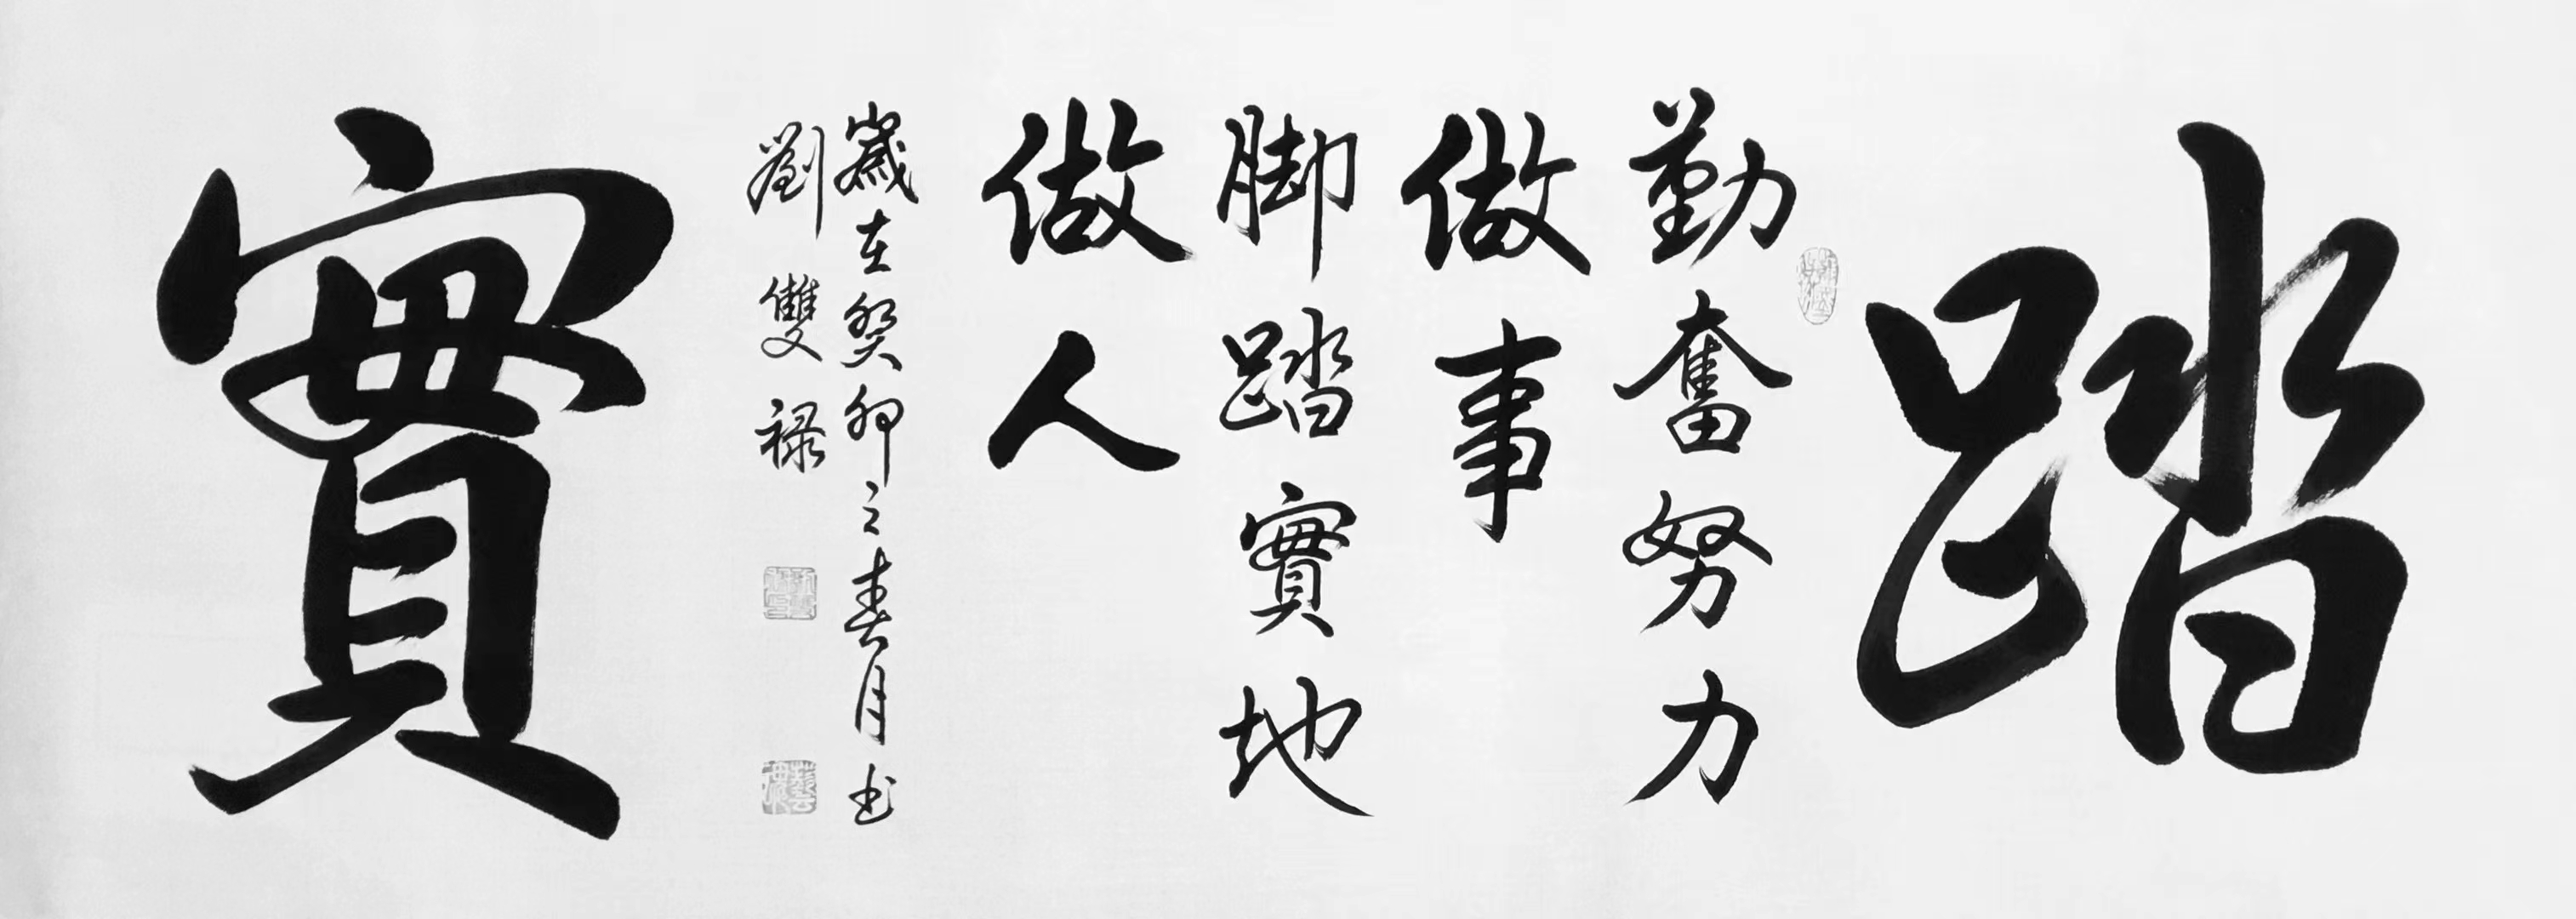 踏
勤奮努力
做事
脚踏實地
做人
歲在癸卯之春月书
劉雙禄
實